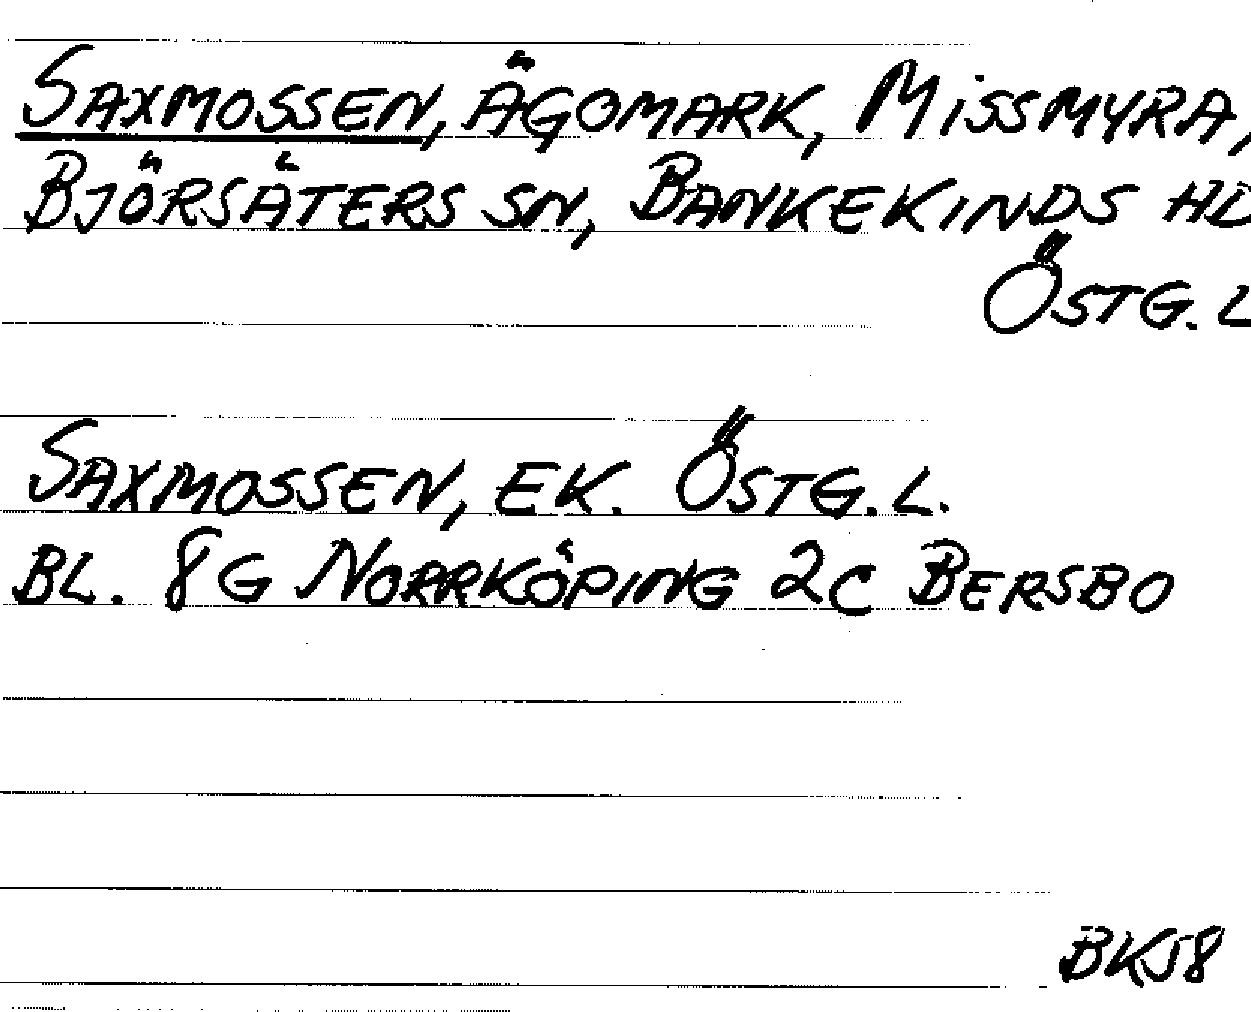 SAXMOSSEN, ÄGOMARK, MISSMYRA,
BJÖRSÄTERS SN, BANKEKINDS HD
ÖSTG. L
SAXMOSSEN, EK. ÖSTG. L.
BL. 8G NORRKÖPING 2C BERSBO
BK58